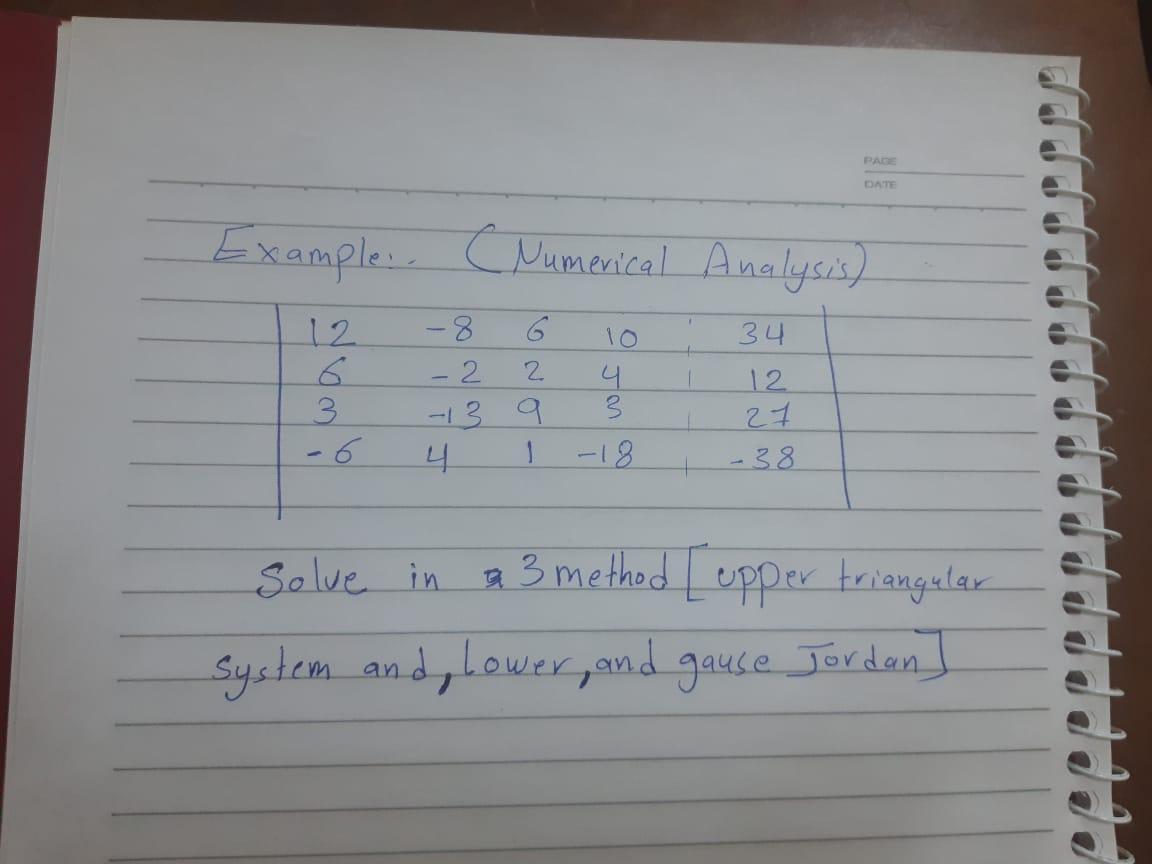 PAGE
DATE
Example:- (Numerical Analysis)
12 -8 6 10 ¦ 34
6 -2 2 4 ¦ 12
3 -13 9 3 ¦ 27
-6 4 1 -18 ¦ -38
Solve in a 3 method [upper triangular
system and, lower, and gause Jordan]